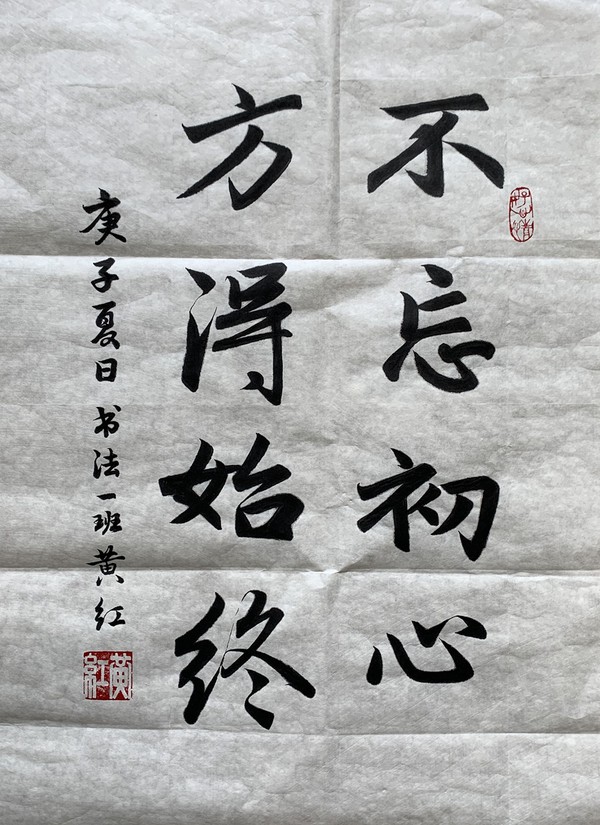 不忘初心
方得始终
庚子夏日 书法一班黄红
黄红